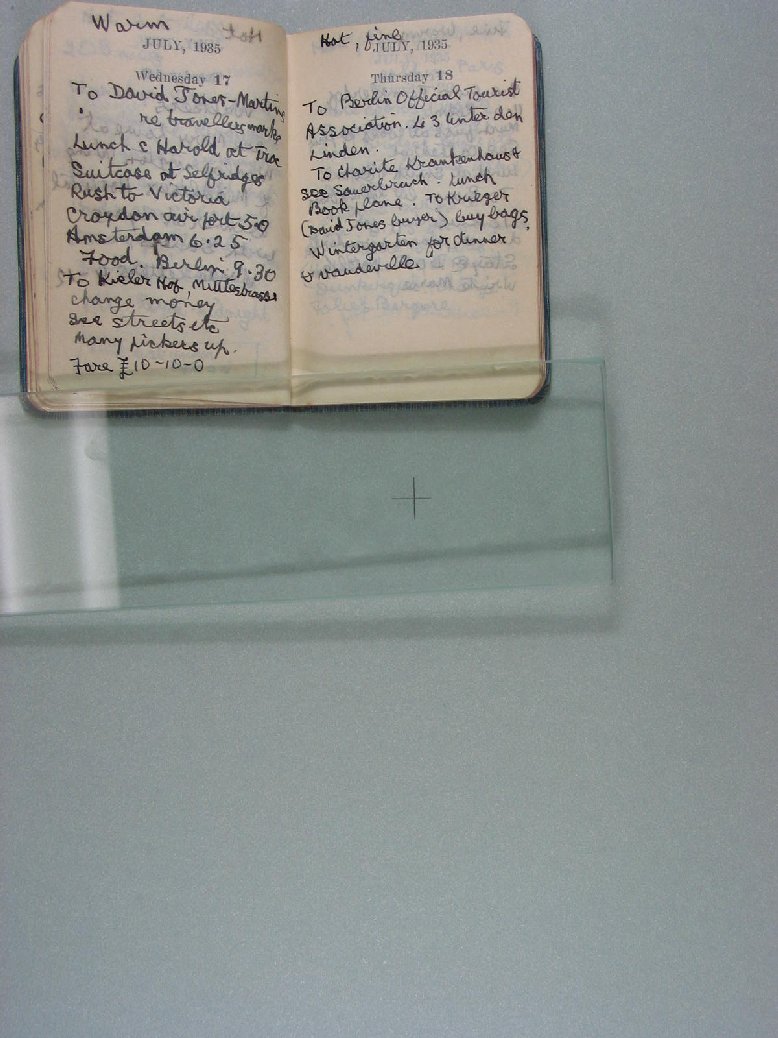 Warm
JULY, 1935
Wednesday 17
To David Jones-Martin
re travellers marks
Lunch c Harold at Troc
Suitcase at Selfridges
Rush to Victoria
Croydon air port 5.0
Amsterdam 6.25
Food. Berlin 9.30
To Kieler Hof Mittlestrasse
change money
see streets etc
Many pickers up.
Fare £10-10-0
Hot, fine
JULY, 1935
Thursday 18
To Berlin Official Tourist
Association. 63 Unter den
Linden.
To Charite Krankenhaus &
see Sauerbruch. Lunch
Book plane. To Krieger
(David Jones buyer) buy bags.
Wintergarten for dinner
& vaudeville